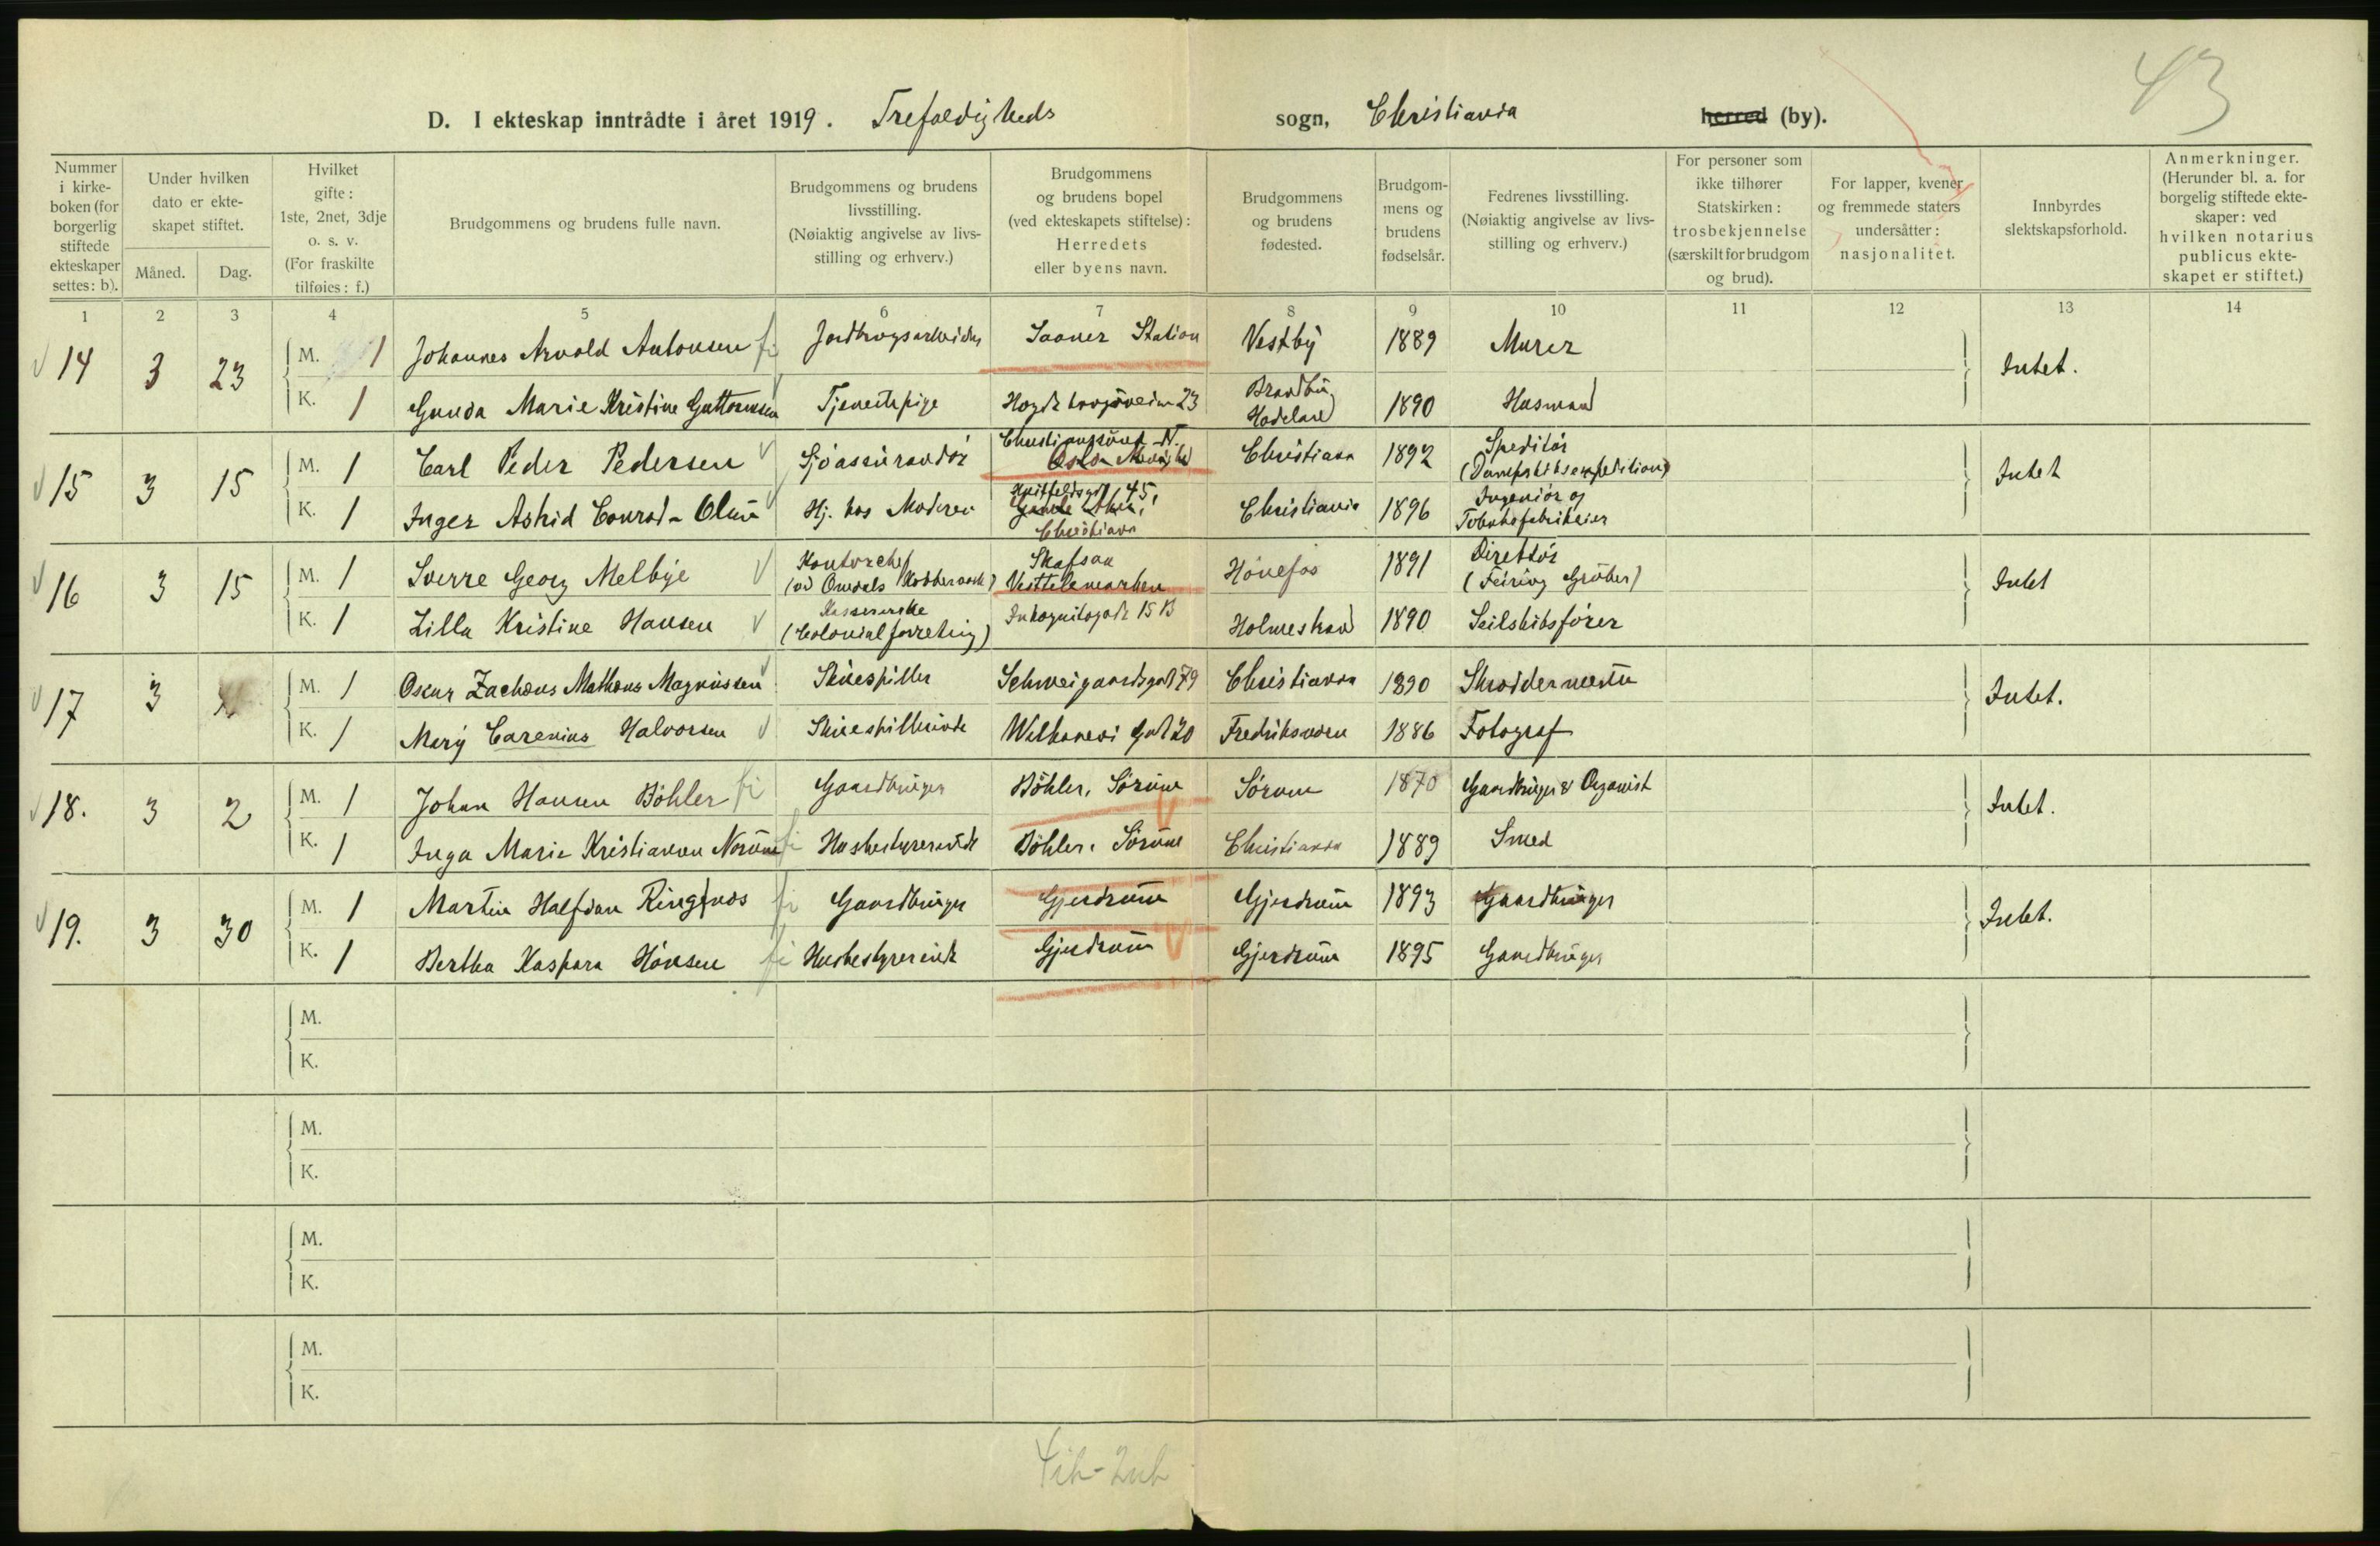 43
D. I ekteskap inntrådte i året 1919. Trefoldigheds sogn, Christiania herred (by).
Nummer i kirke-boken (for borgerlig stiftede ekteskaper settes: b).
Under hvilken dato er ekte-skapet stiftet.
Måned. Dag.
Hvilket gifte: 1ste, 2net, 3dje o. s. v. (For fraskilte tilføies: f.)
Brudgommens og brudens fulle navn.
Brudgommens og brudens livsstilling. (Nøiaktig angivelse av livs-stilling og erhverv.)
Brudgommens og brudens bopel (ved ekteskapets stiftelse): Herredets eller byens navn.
Brudgommens og brudens fødested.
Brudgom-mens og brudens fødselsår.
Fedrenes livsstilling. (Nøiaktig angivelse av livs-stilling og erhverv.)
For personer som ikke tilhører Statskirken: trosbekjennelse (særskilt for brudgom og brud).
For lapper, kvener og fremmede staters undersåtter: nasjonalitet.
Innbyrdes slektskapsforhold.
Anmerkninger. (Herunder bl. a. for borgelig stiftede ekte-skaper: ved hvilken notarius publicus ekte-skapet er stiftet.)
1 2 3 4 5 6 7 8 9 10 11 12 13 14
14 3 23 M. 1 Johannes Arvold Antonsen Jordbrugsarbeider Saaner Station Vestby 1889 Murer Intet.
K. 1 Gunda Marie Kristine Guttormsen Tjenestepige 23 Brandbu Hadeland 1890 Husmand
15 3 15 M. 1 Carl Peder Pedersen Sjöassurandör Christianssund N. Christiania 1892 Speditör (Dampskibsexpedition) Intet
K. 1 Inger Astrid Conrad-Olsen Hj. hos Moderen Huitfeldsgt 45, Christiania Christiania 1896 Ingeniör og Tobaksfabrikeier
16 3 15 M. 1 Sverre Georg Melbye Kontorchef (ved Omdals Kobberverk) Skafsaa Vesttelemarken Hönefos 1891 Direktör (Feiring Gruber) Intet
K. 1 Zilla Kristine Hansen Kassererske (Colonialforretning) Inkognitogade 15 B Holmestrand 1890 Seilskibsförer
17 3 M. 1 Oscar Zachæus Mathæus Magnussen Skuespiller Schweigaardsgd 79 Christiania 1890 Skræddermester Intet.
K. 1 Mary Carenius Halvorsen Skuespillerinde Welhavens Gad 20 Fredriksværn 1886 Fotograf
18. 3 2 M. 1 Johan Hansen Böhler Gaardbruger Böhler, Sörum Sörum 1870 Gaardbruger & Organist Intet.
K. 1 Inga Marie Kristiansen Norum Husbestyrerinde Böhler, Sörum Christiania 1889 Smed
19. 3 30 M. 1 Martin Halfdan Ringnos Gaardbruger Gjerdrum Gjerdrum 1893 Gaardbruger Intet.
K. 1 Bertha Kaspara Hönsen Husbestyrerinde Gjerdrum Gjerdrum 1895 Gaardbruger
M.
K.
M.
K.
M.
K.
M.
K.